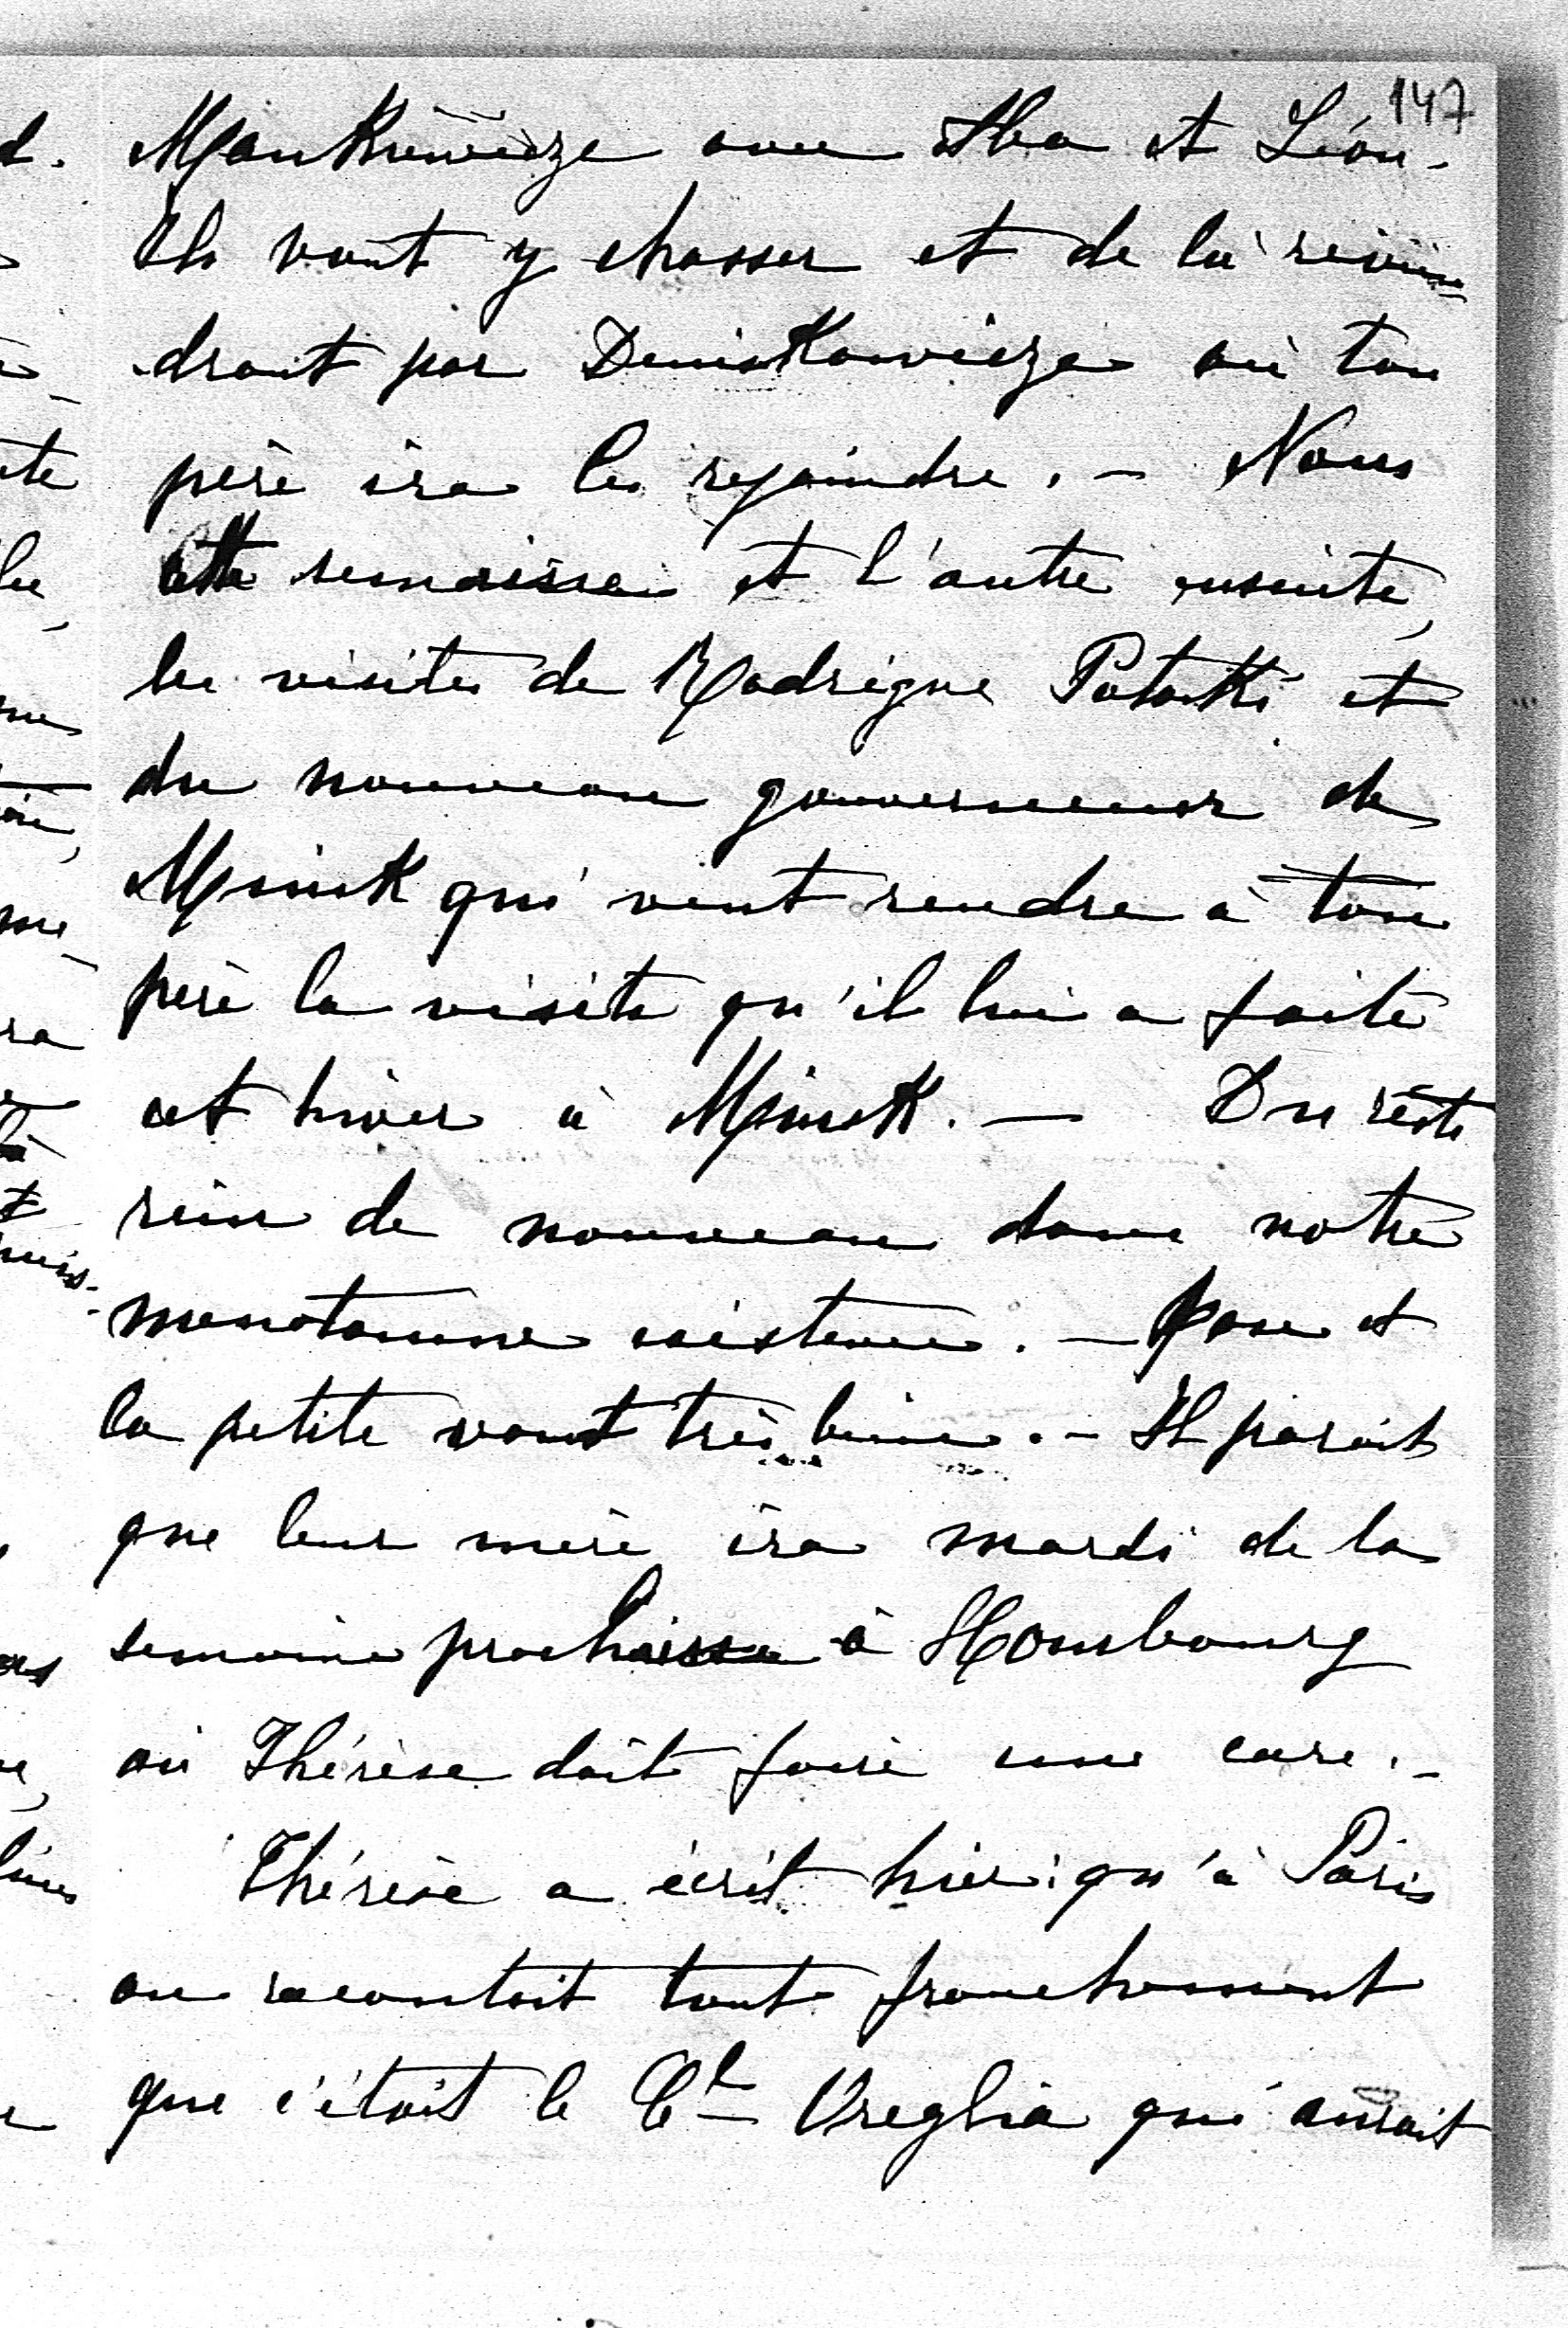 147
Mankiewicze avec Aba et Léon.
Ils vont y chasser et de là revien-
dront par Deniskowicze où ton
père ira les rejoindre. — Nous
cette semaine et l'autre ensuite,
les visites de Rodrigue Potocki et
du nouveau gouverneur de
Minsk qui veut rendre à ton
père la visite qu'il lui a faite
cet hiver à Minsk. — Du reste
rien de nouveau dans notre
monotonne existence. — et
la petite vont très bien. — Il parait
que leur mère ira mardi de la
semaine prochaine à Hombourg
où Thérèse doit faire une cure. —
Thérèse a écrit hier qu'à Paris
on racontait tout franchement
que c'était le Cl Oreglia qui aurait